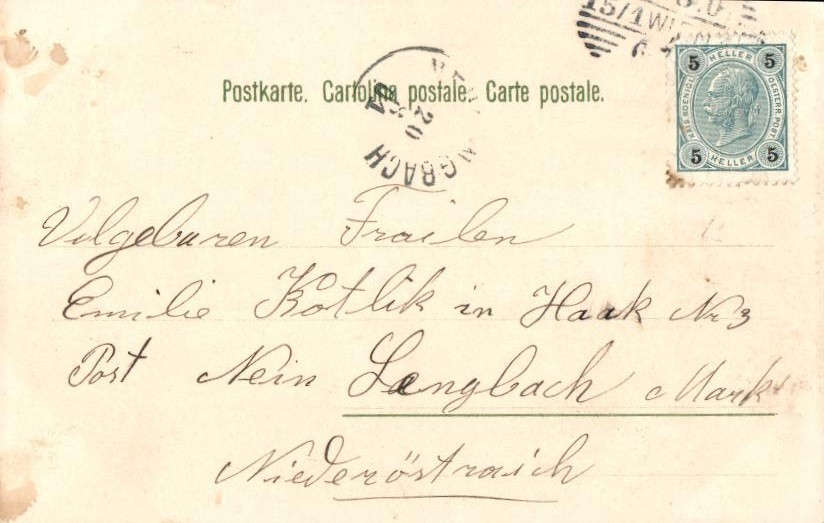 15/1 WI
Postkarte. Cartolina postale. Carte postale.
5 HELLER 5
KAIS. KOENIGL. OESTERR. POST
5 HELLER 5
20
GBACH
Velgeburen Frailen
Emilie Kotlik in Haak Nr 3
Post Nein Lengbach Mark
Niederöstraich